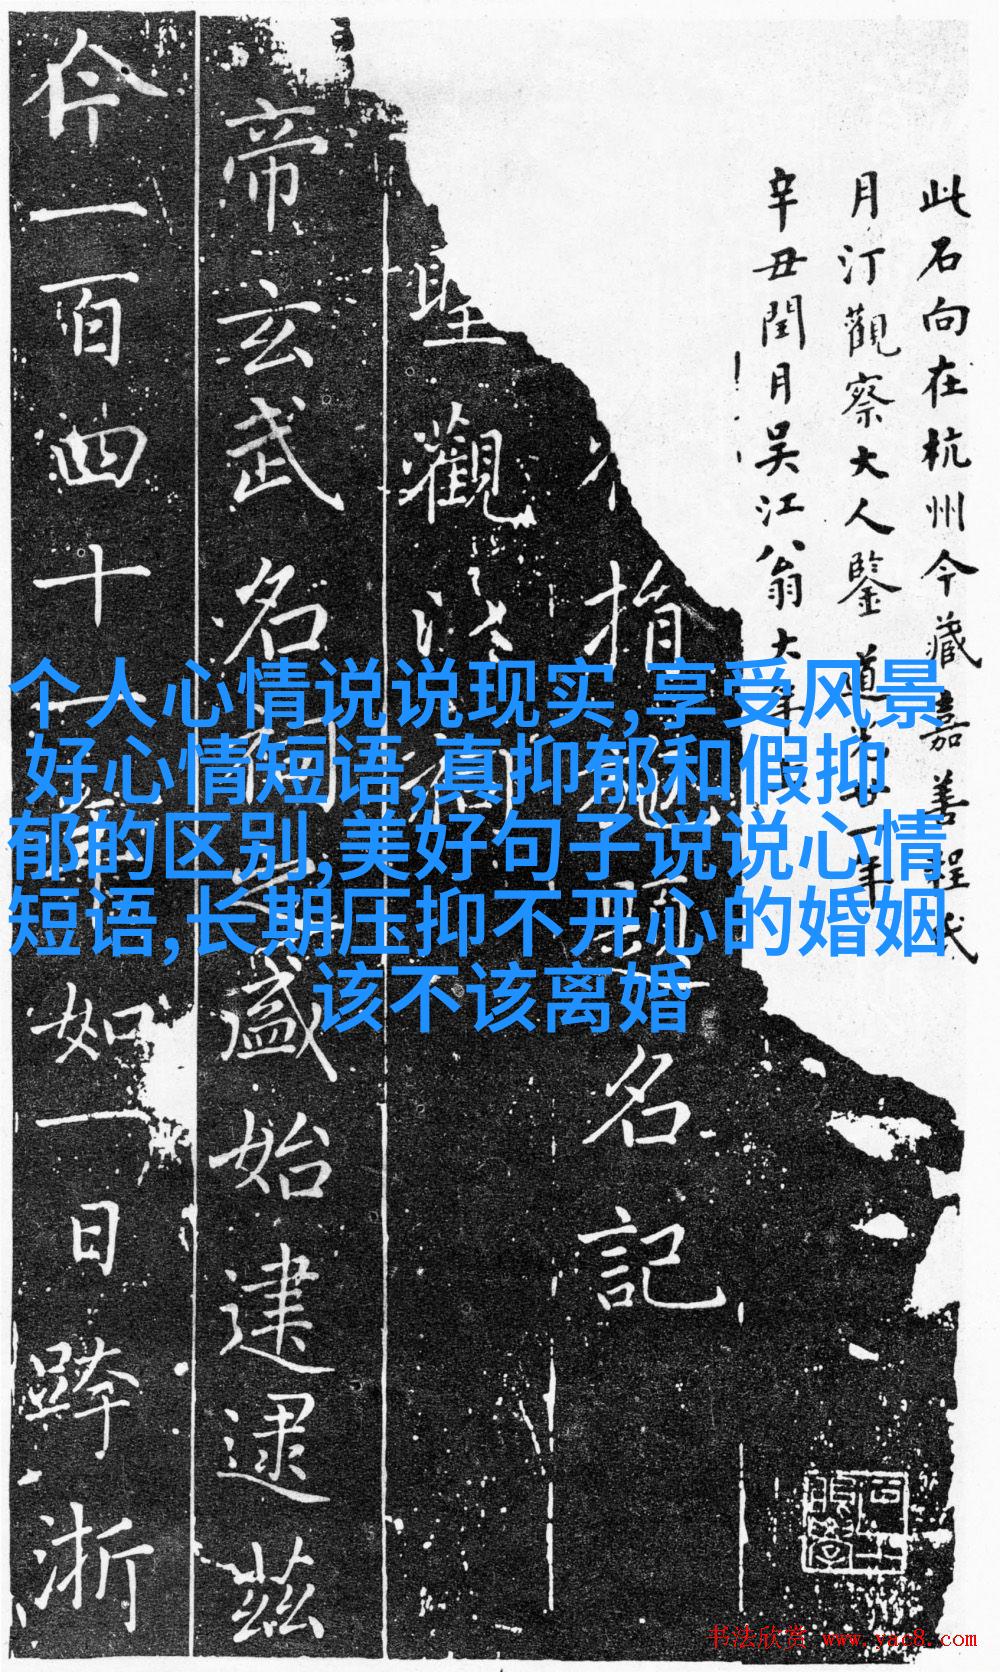 此石向在杭州今藏嘉善程氏
月汀觀察大人鑒 道光廿一年
辛丑閏月吳江翁大年
指
名記
聖觀
帝玄武名
盛始建逮茲
仐一百四十一
如一日蹄浙
个人心情说说现实,享受风景
好心情短语,真抑郁和假抑
郁的区别,美好句子说说心情
短语,长期压抑不开心的婚姻
该不该离婚
书法欣赏 www.yac8.com